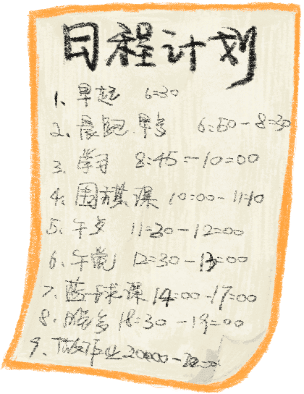 日程计划
1、早起 6:30
2、晨跑 早多 6:50-8:30
3、学习 8:45-10:00
4、围棋课 10:00-11:10
5、午多 11:30-12:00
6、午睡 12:30-13:00
7、篮球课 14:00-17:00
8、晚多 18:30-19:00
9、做作业 20:00-